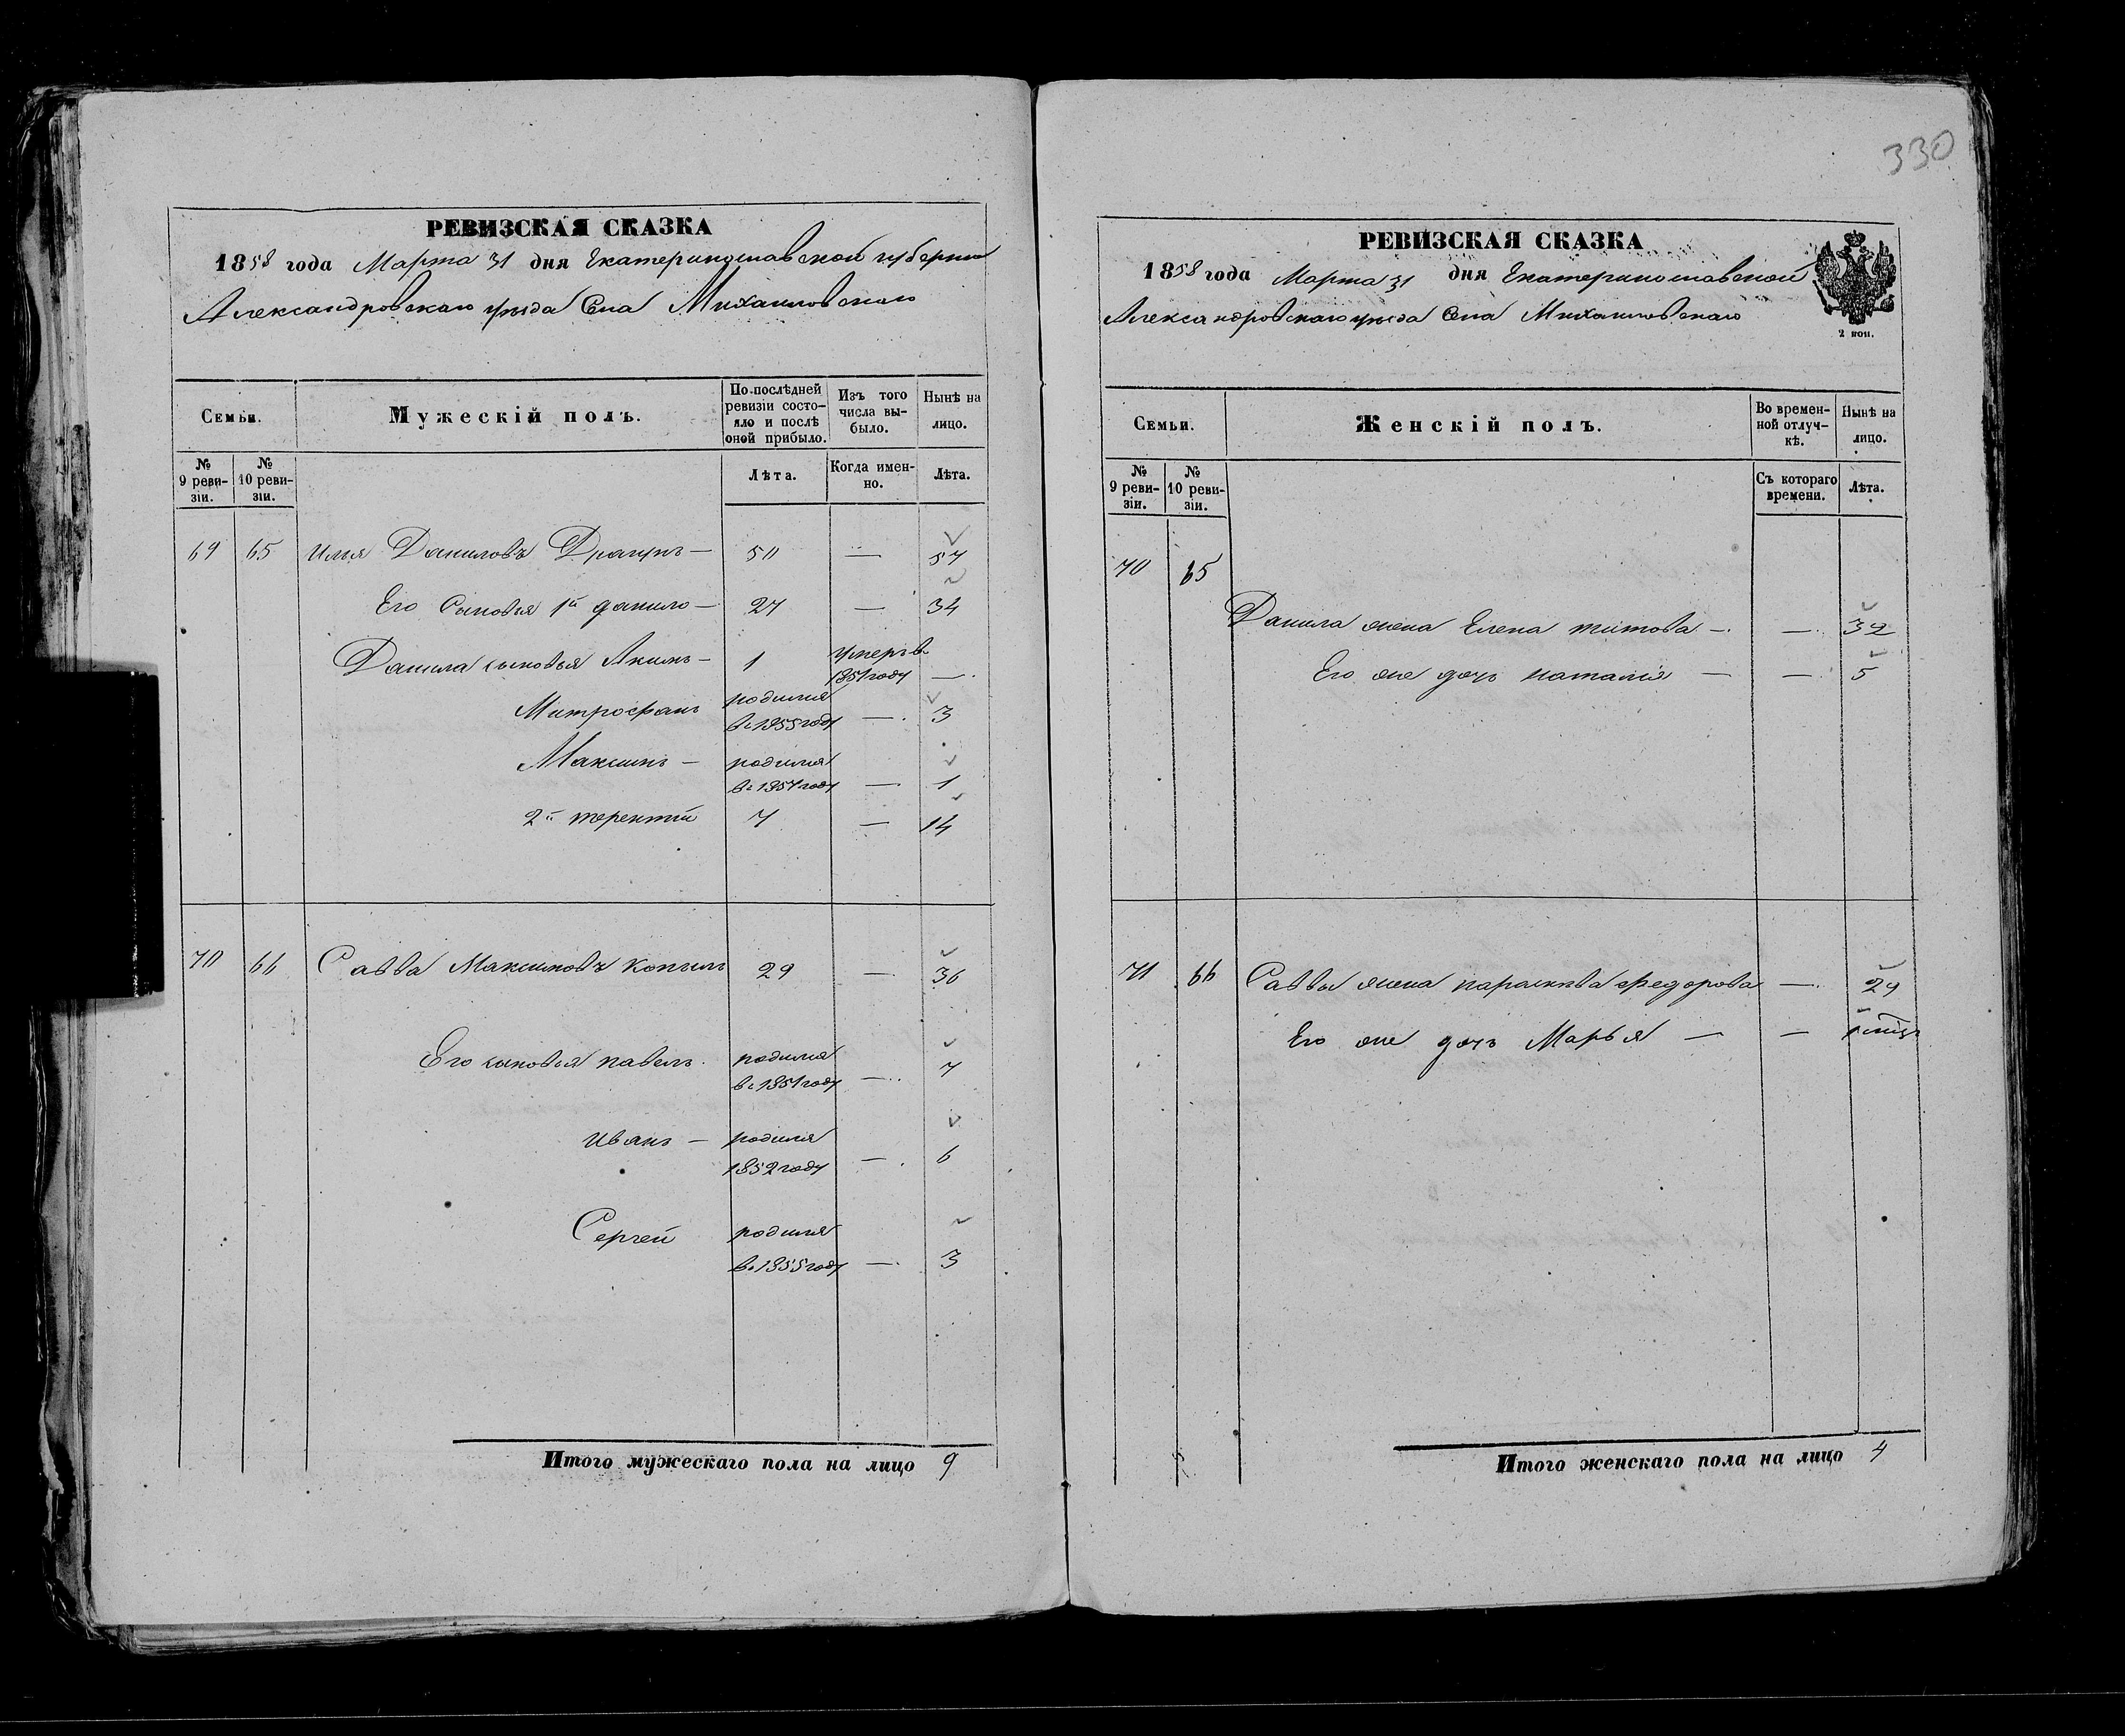 330
РЕВИЗСКАЯ СКАЗКА
1858 года Марта 31 дня Екатеринославской губернии
Александровскаго уезда Села Михайловскаго
Семьи.
Мужескій полъ.
По послѣдней ревизіи состо-
яло и послѣ
оной прибыло.
Изъ того
числа вы-
было.
Нынѣ на
лицо.
№
9 реви-
зіи.
№
10 реви-
зіи.
Лѣта.
Когда имен-
но.
Лѣта.
69 65 Илья Даниловъ — 50 — 57
Его Сыновья 1й данило — 27 — 34
Данила сыновья Акимъ — 1 умеръ в
1851 году —
Митрофанъ родился
въ 1855 году — 3
Максимъ — родился
въ 1857 году — 1
2й терентій 7 — 14
70 66 Савва Максимовъ Копылъ 29 — 36
Его сыновья павелъ родился
въ 1851 году — 7
иванъ — родился
1852 году — 6
Сергей родился
въ 1855 году — 3
Итого мужескаго пола на лицо 9
РЕВИЗСКАЯ СКАЗКА
1858 года Марта 31 дня Екатеринославской
Александровскаго уезда Села Михайловскаго
2 коп.
Семьи.
Женскій полъ.
Во времен-
ной отлуч-
кѣ.
Нынѣ на
лицо.
№
9 реви-
зіи.
№
10 реви-
зіи.
Съ котораго
времени.
Лѣта.
70 65
Данила жена Елена титова — — 32
Его же дочь наталія — — 5
71 66 Саввы жена параскева федорова — 29
Его же дочь Марья — — 1
Итого женскаго пола на лицо 4